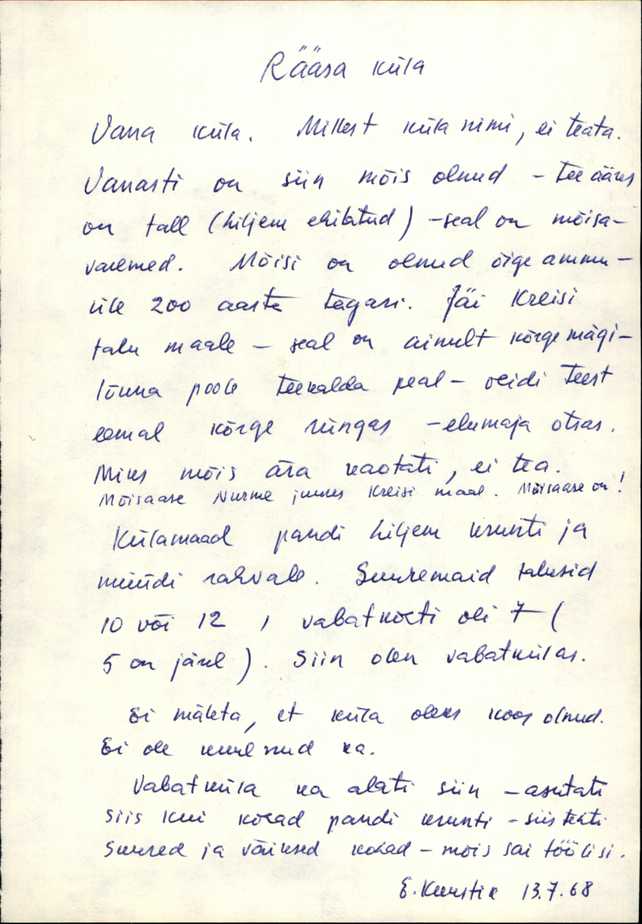 Rääsa küla
Vana küla. Millest küla nimi, ei teata.
Vanasti on siin mõis olnud – tee ääres
on tall (hiljem ehitatud) – seal on mõisa-
varemed. Mõisi on olnud õige ammu –
üle 200 aasta tagasi. Jäi Kreisi
talu maale – seal on ainult kõrge mägi –
lõuna poole teekalda peal – veidi teest
eemal kõrge küngas – elumaja otsas.
Miks mõis ära kaotati, ei tea.
Mõisaase Nurme juures Kreisi maal. Mõisaase on!
Külamaad pandi hiljem krunti ja
müüdi rahvale. Suuremaid talusid
10 või 12, vabatkohti oli 7 (
5 on järel). Siin olen vabatkülas.
Ei mäleta, et küla oleks koos olnud.
Ei ole kuulnud ka.
Vabatküla ka alati siin – asutati
siis kui kohad pandi krunti – siis tehti
suured ja väiksed kohad – mõis sai töölisi.
13.7.68